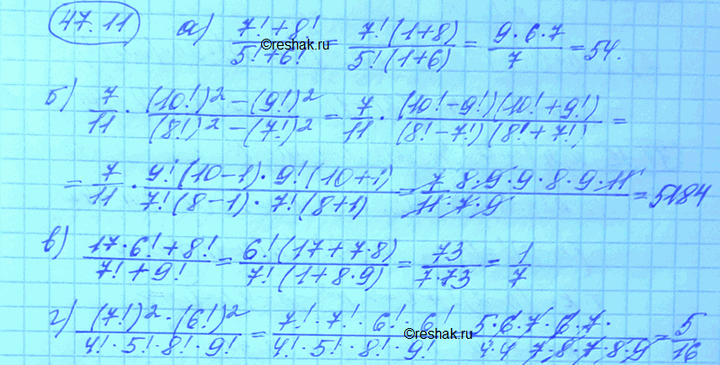 47.11 а) (7!+8!)/(5!+6!) = 7!(1+8)/5!(1+6) = 9·6·7/7 = 54.
©reshak.ru
б) 7/11 · ((10!)²-(9!)²)/((8!)²-(7!)²) = 7/11 · (10!-9!)(10!+9!)/(8!-7!)(8!+7!) =
= 7/11 · 9!(10-1)·9!(10+1)/7!(8-1)·7!(8+1) = 7·8·9·9·8·9·11/11·7·9 = 5184
в) (17·6!+8!)/(7!+9!) = 6!(17+7·8)/7!(1+8·9) = 73/7·73 = 1/7
г) (7!)²·(6!)²/4!·5!·8!·9! = 7!·7!·6!·6!/4!·5!·8!·9! 5·6·7·6·7·/4·4 7·8·7·8·9 = 5/16
©reshak.ru